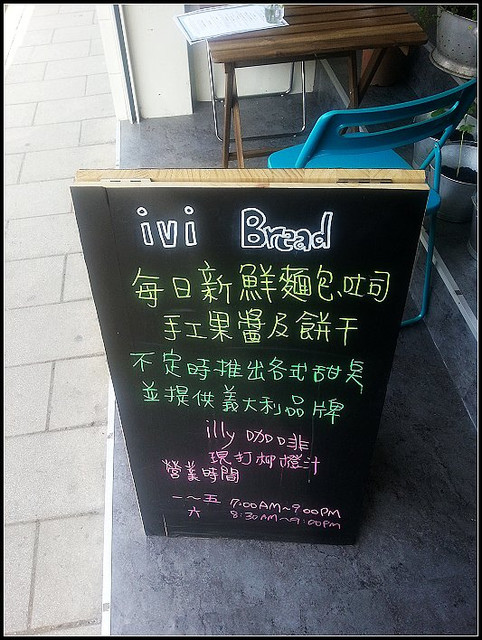 ivi Bread
每日新鮮麵包、吐司
手工果醬及餅干
不定時推出各式甜點
並提供義大利品牌
illy 咖啡
現打柳橙汁
營業時間
一～五 7:00AM～9:00PM
六 8:30AM～9:00PM